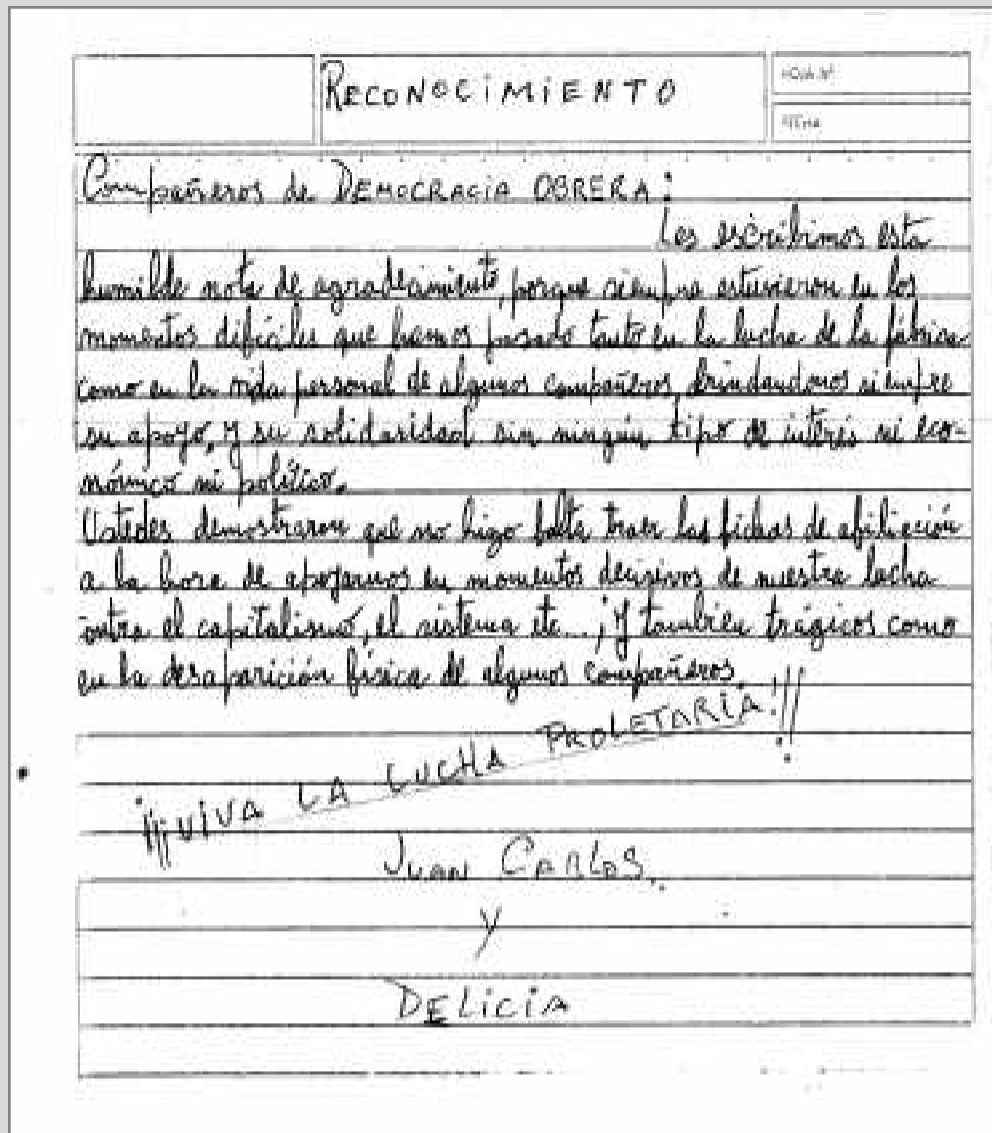 RECONOCIMIENTO
HOJA Nº
FECHA
Compañeros de DEMOCRACIA OBRERA:
Les escribimos esta
humilde nota de agradecimiento, porque siempre estuvieron en los
momentos difíciles que hemos pasado tanto en la lucha de la fábrica
como en la vida personal de algunos compañeros, brindandonos siempre
su apoyo, y su solidaridad sin ningún tipo de interés ni eco-
nómico ni político.
Ustedes demostraron que no hizo falta traer las fichas de afiliación
a la hora de apoyarnos en momentos decisivos de nuestra lucha
contra el capitalismo, el sistema etc..., y tambien trágicos como
en la desaparición física de algunos compañeros.
¡¡¡VIVA LA LUCHA PROLETARIA!!!
JUAN CARLOS.
Y
DELICIA